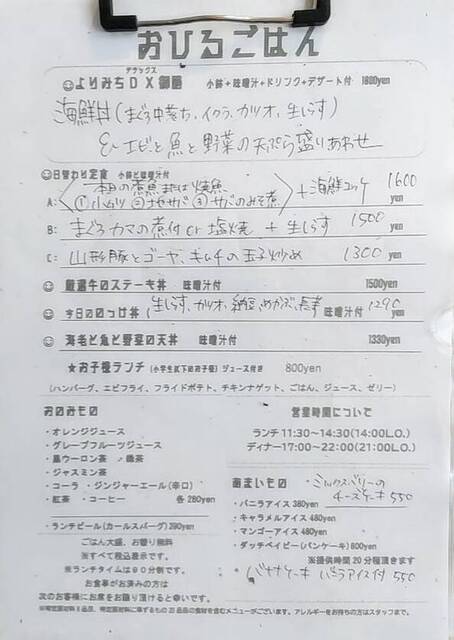 おひるごはん
デラックス
よりみちDX御膳 小鉢+味噌汁+ドリンク+デザート付 1800yen
海鮮丼(まぐろ中落ち、イクラ、カツオ、生しらす)
& エビと魚と野菜の天ぷら盛りあわせ
日替わり定食 小鉢と味噌汁付
A: 本日の煮魚または焼魚 +海鮮ユッケ 1600 yen
③サバのみそ煮
B: まぐろカマの煮付 or 塩焼 + 生しらす 1500 yen
C: 山形豚とゴーヤ、キムチの玉子炒め 1300 yen
厳選牛のステーキ丼 味噌汁付 1500yen
今日ののっけ丼 生しらす、カツオ、納豆、めかぶ、長芋 味噌汁付 1290 yen
海老と魚と野菜の天丼 味噌汁付 1330yen
★お子様ランチ (小学生以下のお子様) ジュース付き 800yen
(ハンバーグ、エビフライ、フライドポテト、チキンナゲット、ごはん、ジュース、ゼリー)
おのみもの
・オレンジジュース
・グレープフルーツジュース
・黒ウーロン茶 ・緑茶
・ジャスミン茶
・コーラ ・ジンジャーエール(辛口)
・紅茶 ・コーヒー 各 280yen
・ランチビール(カールスバーグ)390yen
ごはん大盛、お替り無料
※すべて税込表示です。
※ランチタイムは90分制です。
お食事がお済みの方は
次のお客様にお席をお譲り頂けると幸いです。
営業時間について
ランチ 11:30~14:30(14:00L.O.)
ディナー17:00~22:00(21:00L.O.)
あまいもの ・ミルクスベリーのチーズケーキ 550
・バニラアイス 380yen
・キャラメルアイス 480yen
・マンゴーアイス 480yen
・ダッチベイビー(パンケーキ) 800yen
※提供時間 20分程頂きます
・バナナケーキ バニラアイス付 550
※特定原材料8品目、特定原材料に準ずるもの20品目の食材を含むメニューがございます。アレルギーをお持ちの方はスタッフまで。